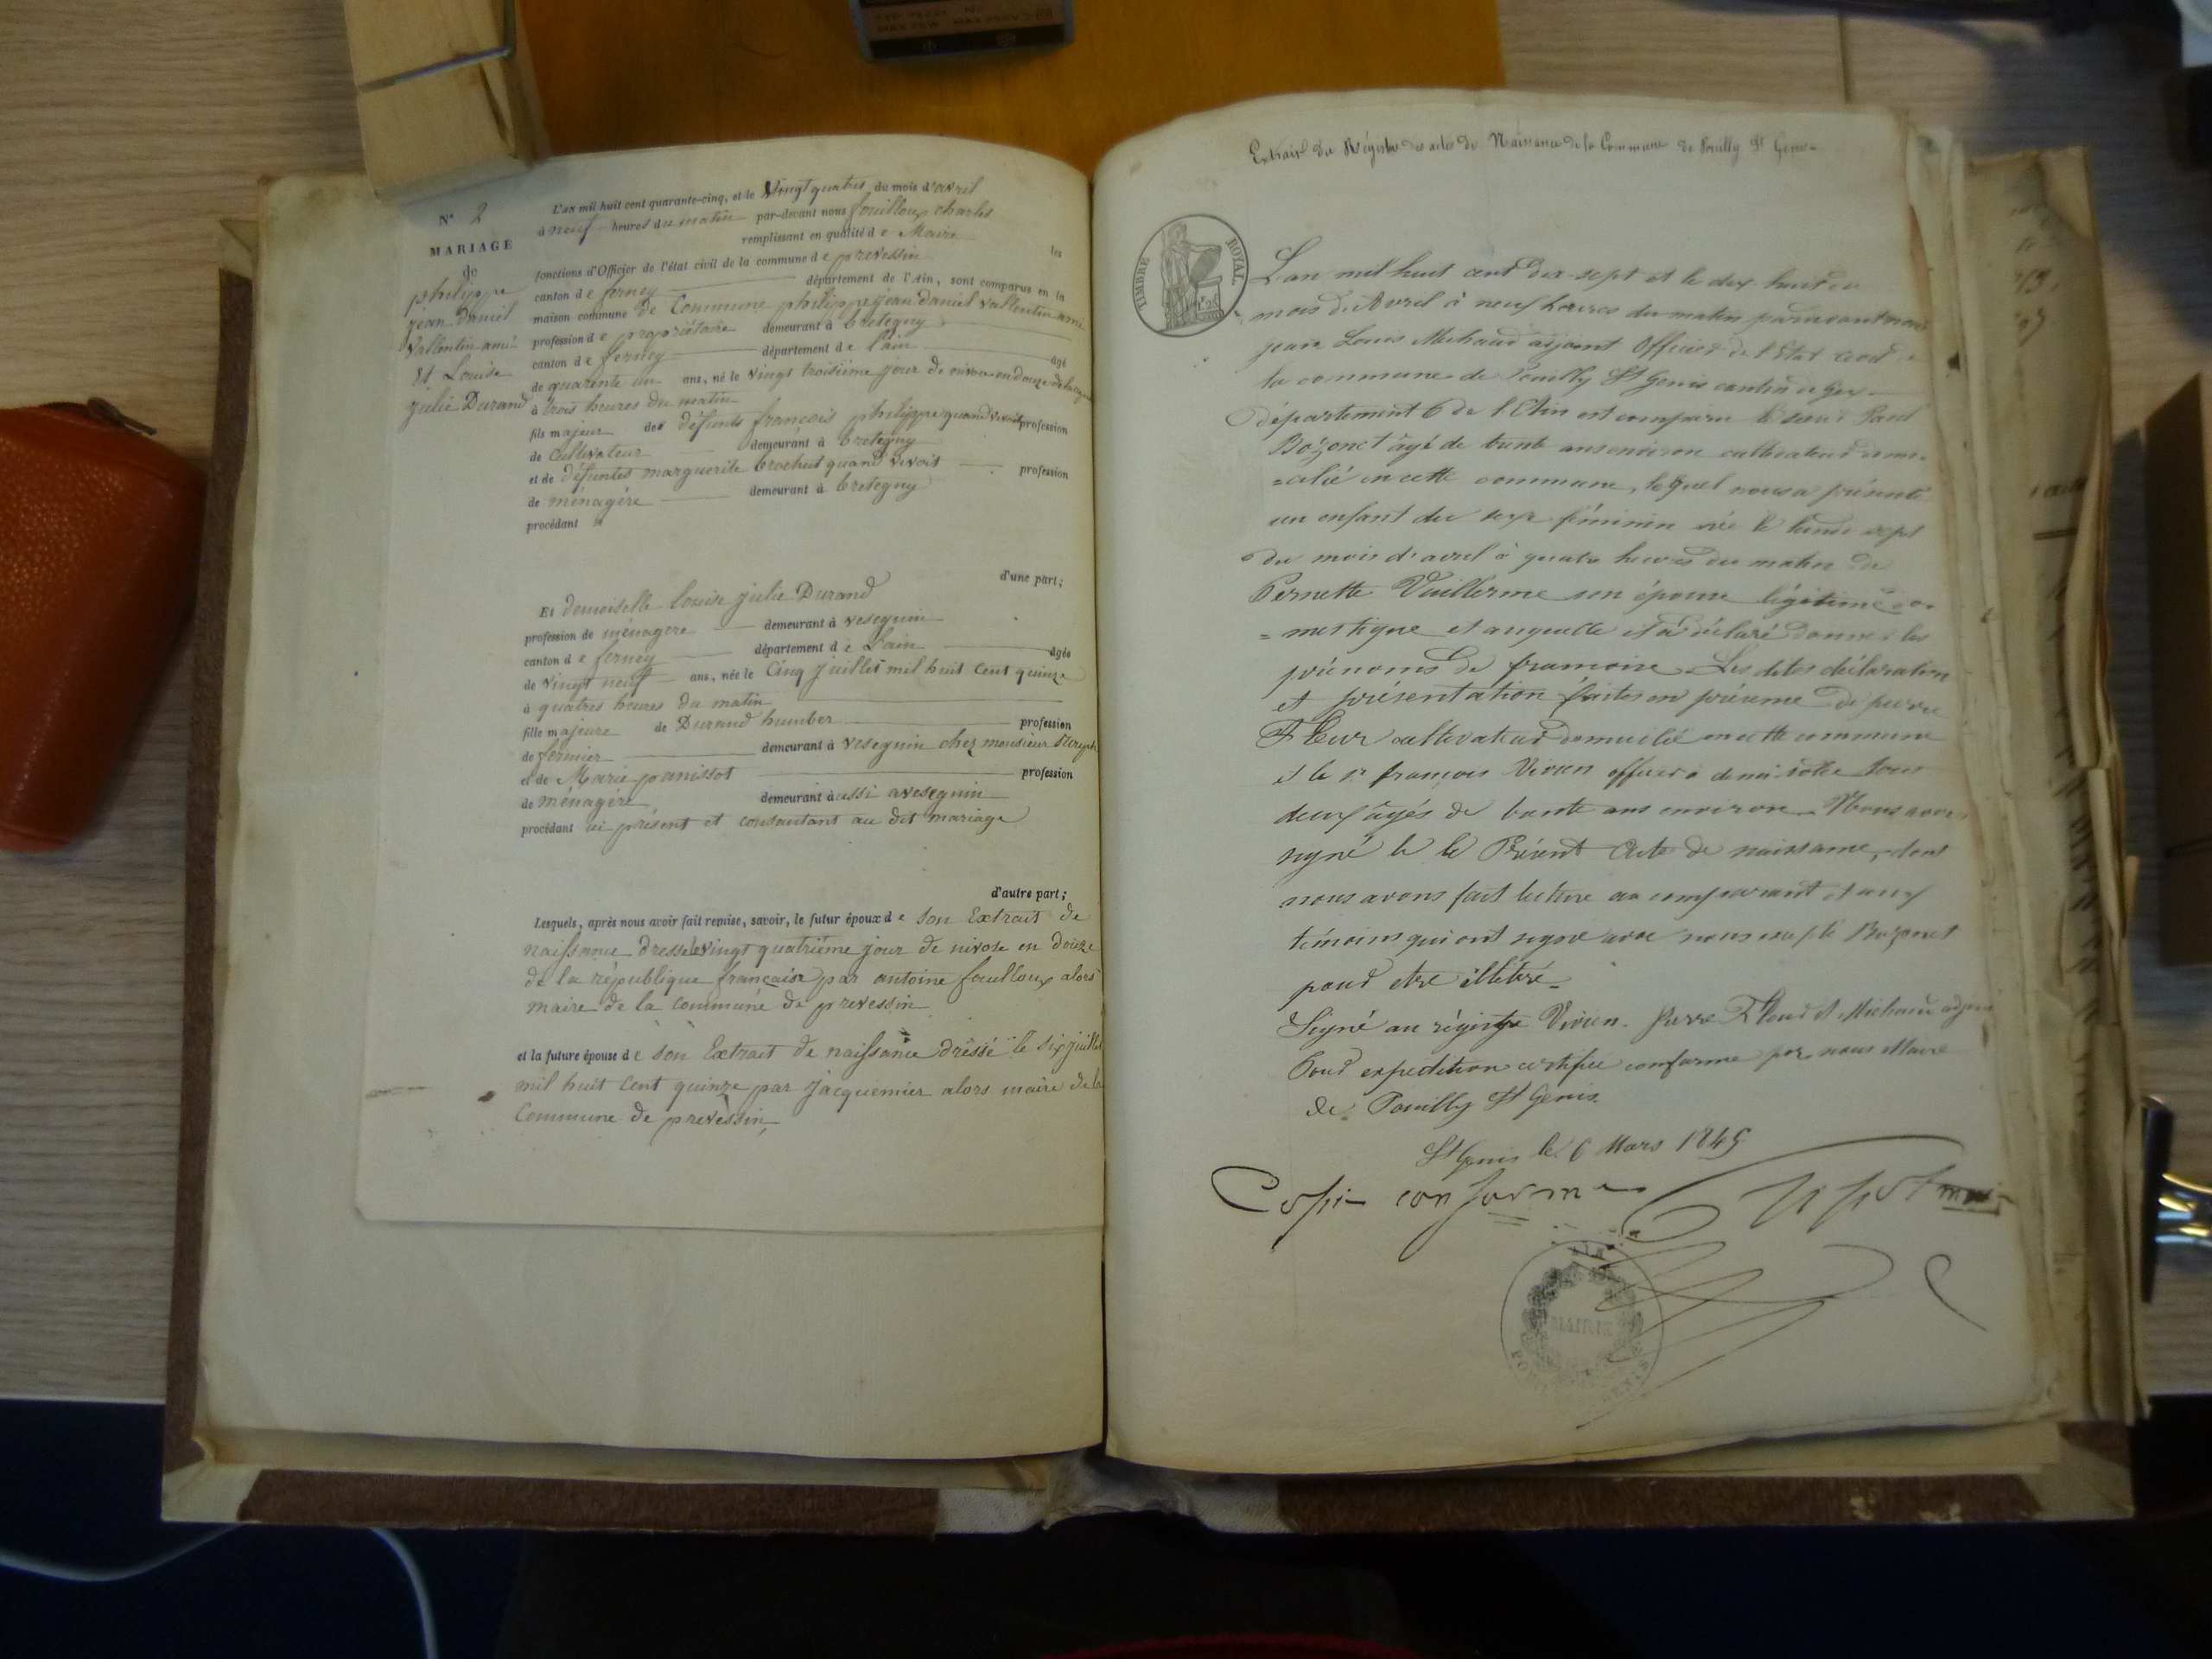 N° 2
MARIAGE
de
philippe
jean daniel
Vallentin ami
Et Louise
julie Durand
L'an mil huit cent quarante-cinq, et le Vingt quatres du mois d'avril
à neuf heures du matin par-devant nous fouilloux charles
remplissant en qualité de Maire les
fonctions d'Officier de l'état civil de la commune de prevessin
canton de ferney département de l'Ain, sont comparus en la
maison commune de Commune philippe jean daniel vallentin ami
profession de propriétaire demeurant à bretegny
canton de ferney département de l'ain âgé
de quarente un ans, né le vingt troisième jour de nivose en douze
à trois heures du matin
fils majeur des défunts françois philippe quand vivoit profession
de cultivateur demeurant à bretegny
et de défuntes marguerite brochut quand vivoit profession
de ménagère demeurant à bretegny
procédant
d'une part;
Et demoiselle louise julie Durand
profession de ménagere demeurant à vesegnin
canton de ferney département de L'ain âgée
de vingt neuf ans, née le Cinq juillet mil huit Cent quinze
à quatres heures du matin
fille majeure de Durand humber profession
de fermier demeurant à vesegnin chez monsieur
et de Marie panissot profession
de ménagére demeurant à aussi a vesegnin
procédant ici présent et consantant au dit mariage
d'autre part;
Lesquels, après nous avoir fait remise, savoir, le futur époux de son Extrait de
naissance dressé le vingt quatrième jour de nivose en douze
de la république française par antoine fouilloux alors
maire de la commune de prevessin
et la future épouse de son Extrait de naissance dressé le six juillet
mil huit Cent quinze par jacquemier alors maire de la
Commune de prevessin
Extrait du Régistre des actes de Naissance de la Commune de Pouilly St Genis
TIMBRE ROYAL
L'an mil huit cent dix-sept et le dix huit du
mois d'Avril à neuf heures du matin pardevant nous
jean Louis Michaud adjoint Officier de l'Etat Civil de
la commune de Pouilly St Genis canton de Gex
département de l'Ain est comparu le sieur Paul
Bozonet âgé de trente ans environ cultivateur domi-
=cilié en cette commune, lequel nous a présenté
un enfant du sexe féminin née le
du mois d'avril à quatre heures du matin de
Pernette Vuillerme son épouse légitime
et auquelle il a déclaré donner les
prénoms de francoise Les dites déclaration
et présentation faites en présence de pierre
Fleur cultivateur domicilié en cette commune
et le sr françois Vivien officier tous
deux âgés de trente ans environ. Nous avons
signé le Présent Acte de naissance, dont
nous avons fait lecture au comparant et aux
témoins qui ont signé avec nous Bozonet
pour être illétéré
Signé au régistre Vivien. Pierre Fleur et Michaud adjoint
Pour expédition certifiée conforme par nous Maire
de Pouilly St Genis
St Genis le 6 Mars 1845
Copie conforme
MAIRIE